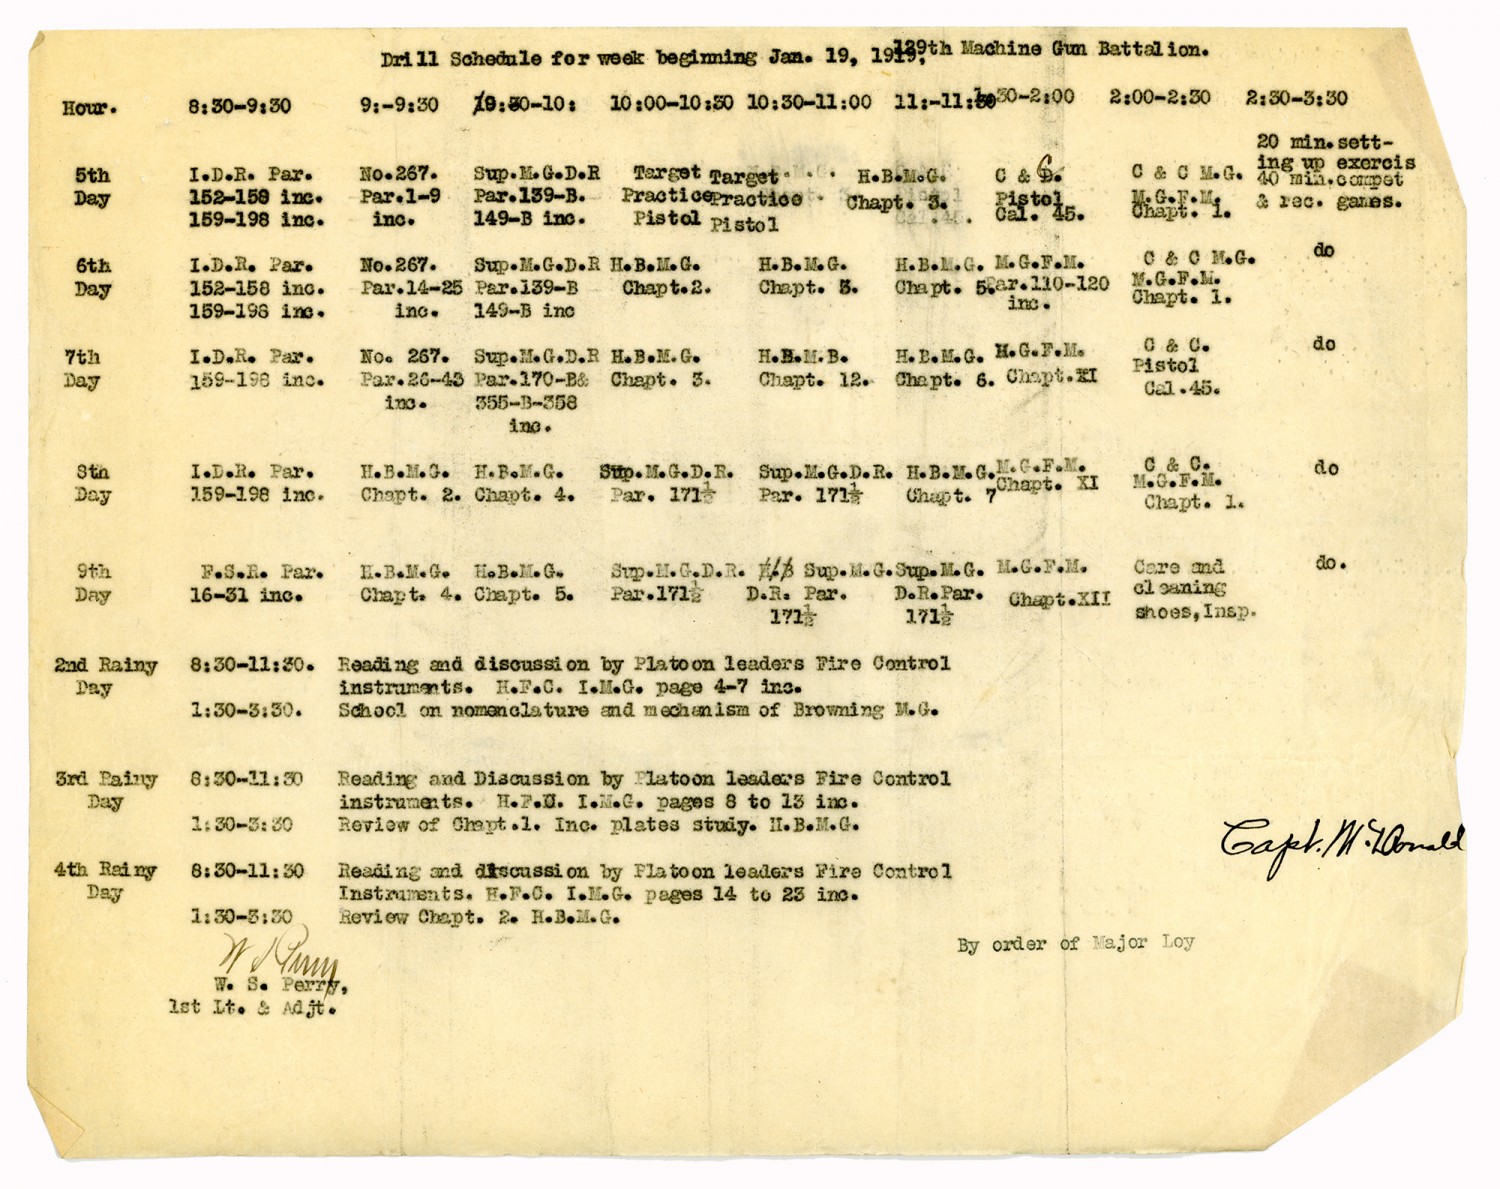 Drill Schedule for week beginning Jan. 19, 1919, 129th Machine Gun Battalion.
Hour. 8:30-9:30 9:-9:30 10:- 11:- 30-2:00 2:00-2:30 2:30-3:30
10:00-10:30 10:30-11:00
5th I.D.R. Par. No.267. Sup.M.G.D.R Target Target H.B.M.G. C & C. C & C M.G. 20 min.sett-
Day 152-158 inc. Par.1-9 Par.139-B. Practice Practice Chapt. 3. Pistol M.G.F.M. ing up exercis
159-198 inc. inc. 149-B inc. Pistol Pistol Cal. 45. Chapt. 1. 40 min.compet
& rec. games.
6th I.D.R. Par. No.267. Sup.M.G.D.R H.B.M.G. H.B.M.G. H.B.M.G. M.G.F.M. C & C M.G. do
Day 152-158 inc. Par.14-25 Par.139-B Chapt.2. Chapt. 3. Chapt. 5. Par.110-120 M.G.F.M.
159-198 inc. inc. 149-B inc inc. Chapt. 1.
7th I.D.R. Par. No. 267. Sup.M.G.D.R H.B.M.G. H.B.M.B. H.B.M.G. M.G.F.M. C & C. do
Day 159-198 inc. Par.26-43 Par.170-B& Chapt. 3. Chapt. 12. Chapt. 6. Chapt.XI Pistol
inc. 355-B-358 Cal.45.
inc.
8th I.D.R. Par. H.B.M.G. H.B.M.G. Sup.M.G.D.R. Sup.M.G.D.R. H.B.M.G. M.G.F.M. C & C. do
Day 159-198 inc. Chapt. 2. Chapt. 4. Par. 171½ Par. 171½ Chapt. 7 Chapt. XI M.G.F.M.
Chapt. 1.
9th F.S.R. Par. H.B.M.G. H.B.M.G. Sup.M.G.D.R. Sup.M.G. Sup.M.G. M.G.F.M. Care and do.
Day 16-31 inc. Chapt. 4. Chapt. 5. Par.171½ D.R. Par. D.R.Par. Chapt.XII cleaning
171½ 171½ shoes,Insp.
2nd Rainy 8:30-11:30. Reading and discussion by Platoon leaders Fire Control
Day instruments. H.F.C. I.M.G. page 4-7 inc.
1:30-3:30. School on nomenclature and mechanism of Browning M.G.
3rd Rainy 8:30-11:30 Reading and Discussion by Platoon leaders Fire Control
Day instruments. H.F.C. I.M.G. pages 8 to 13 inc.
1:30-3:30 Review of Chapt.1. Inc. plates study. H.B.M.G.
Capt. McDonald
4th Rainy 8:30-11:30 Reading and discussion by Platoon leaders Fire Control
Day Instruments. H.F.C. I.M.G. pages 14 to 23 inc.
1:30-3:30 Review Chapt. 2. H.B.M.G.
By order of Major Loy
W S Perry
W. S. Perry,
1st Lt. & Adjt.